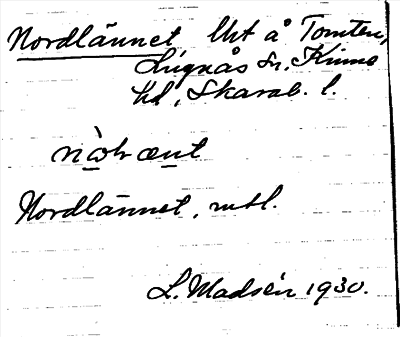 Nordlännet, lht å Tomten,
Lugnås sn. Kinne
hd, Skarab. l.
Nordlännet, mtl.
L. Madsén 1930.